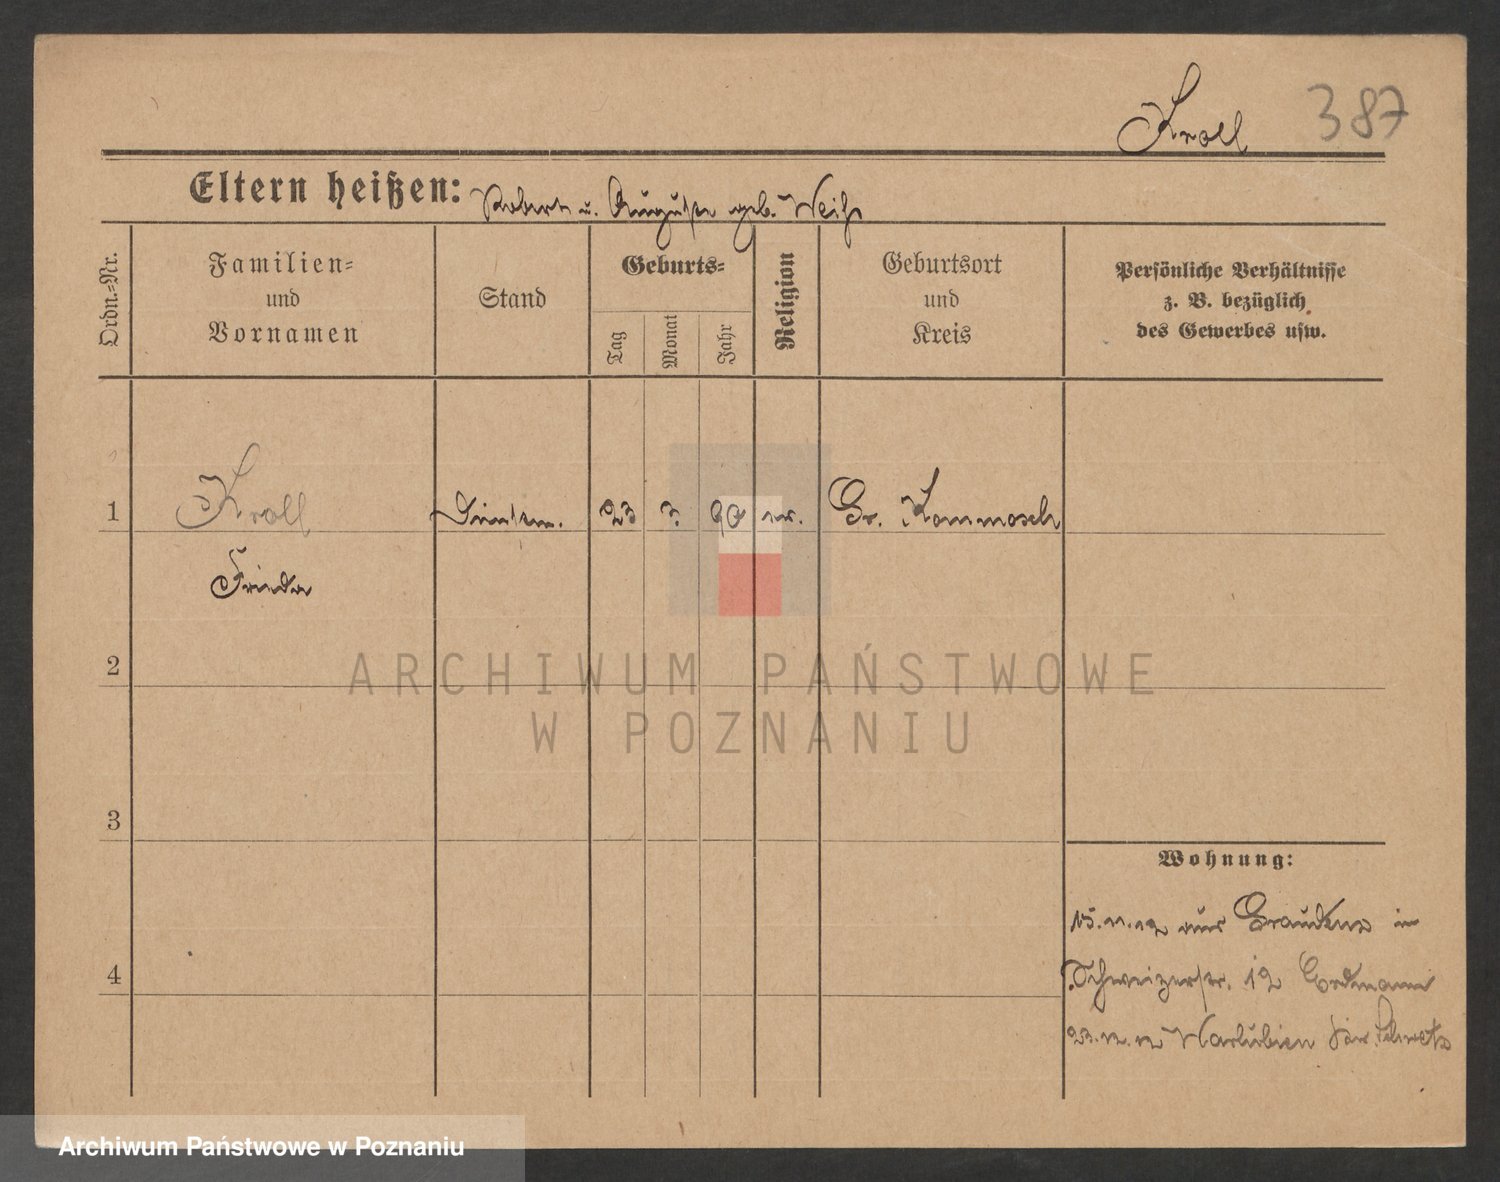 Kroll 387
Eltern heißen: Robert u. Auguste geb. Weiß
Ordn.-Nr.
Familien-
und
Vornamen
Stand
Geburts-
Tag
Monat
Jahr
Religion
Geburtsort
und
Kreis
Persönliche Verhältnisse
z. B. bezüglich
des Gewerbes usw.
1 Kroll 23 3. 90 ev. Gr. Kommorsk
Frieda
2
ARCHIWUM PAŃSTWOWE
W POZNANIU
3
Wohnung:
15.11.12 aus Graudenz in
4
Schweizerstr. 12 Erdmann
23.12.12 Warlubien Kr. Schwetz
Archiwum Państwowe w Poznaniu